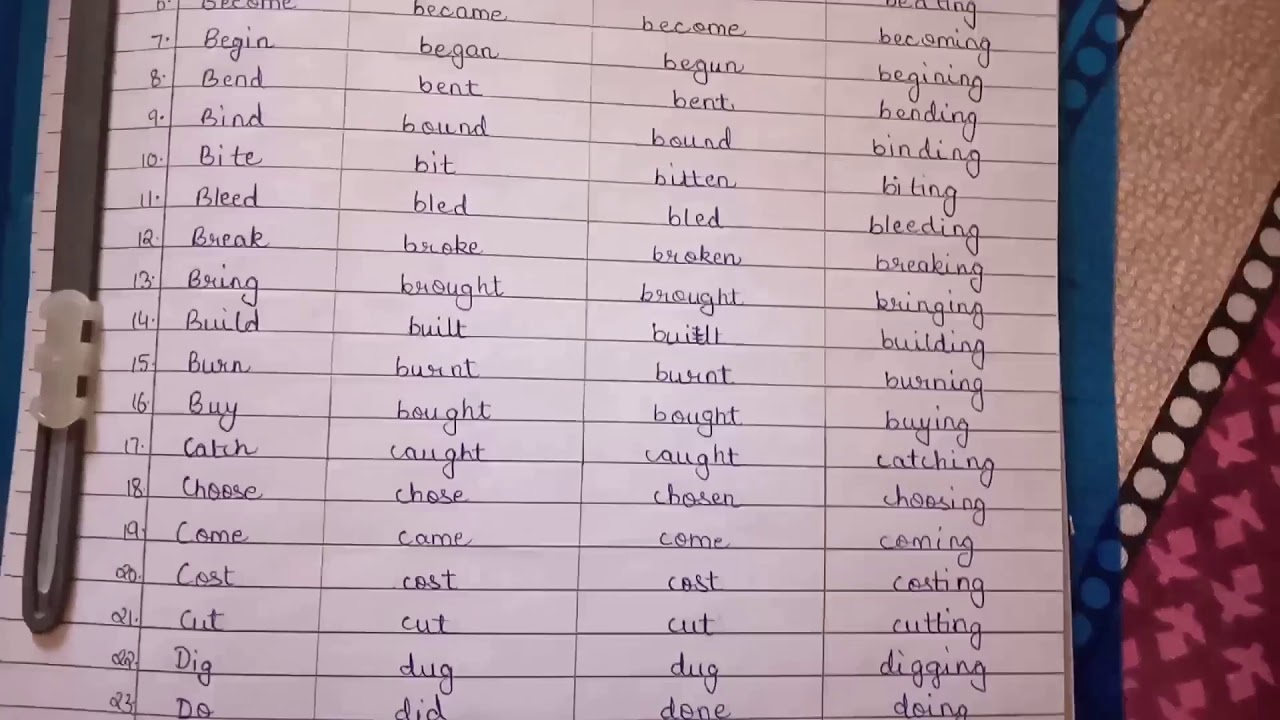 6. Become became become becoming
7. Begin began begun begining
8. Bend bent bent bending
9. Bind bound bound binding
10. Bite bit bitten biting
11. Bleed bled bled bleeding
12. Break broke broken breaking
13. Bring brought brought bringing
14. Build built built building
15. Burn burnt burnt burning
16. Buy bought bought buying
17. Catch caught caught catching
18. Choose chose chosen choosing
19. Come came come coming
20. Cost cost cost costing
21. Cut cut cut cutting
22. Dig dug dug digging
23. Do did done doing